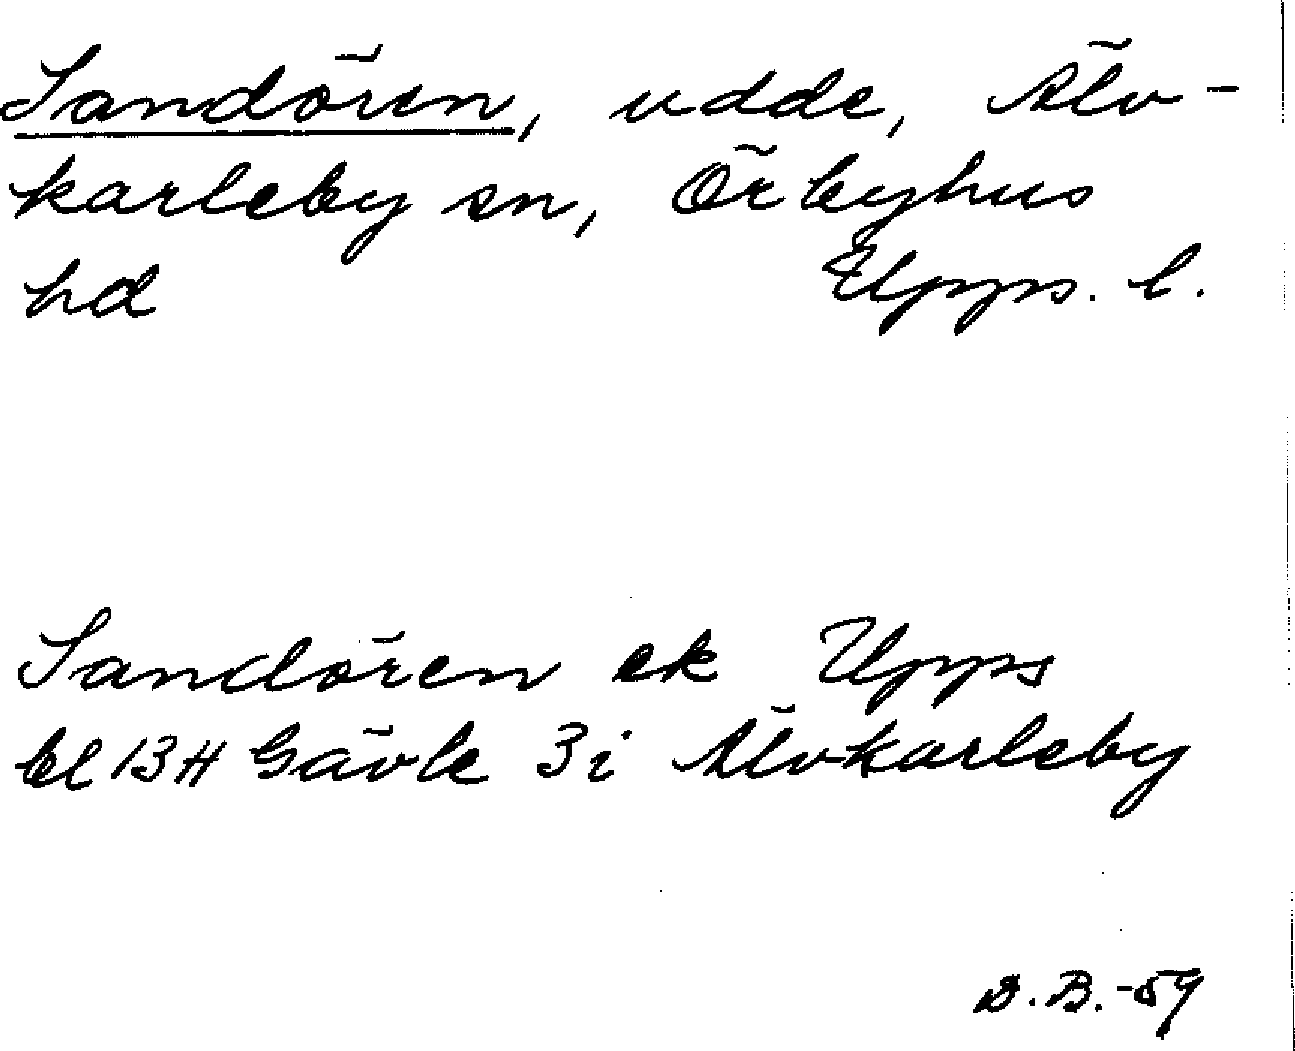 Sandören, udde, Älv-
karleby sn, Örbyhus
hd Upps. l.
Sandören ek Upps
bl 13H Gävle 3i Älvkarleby
B.B.-59